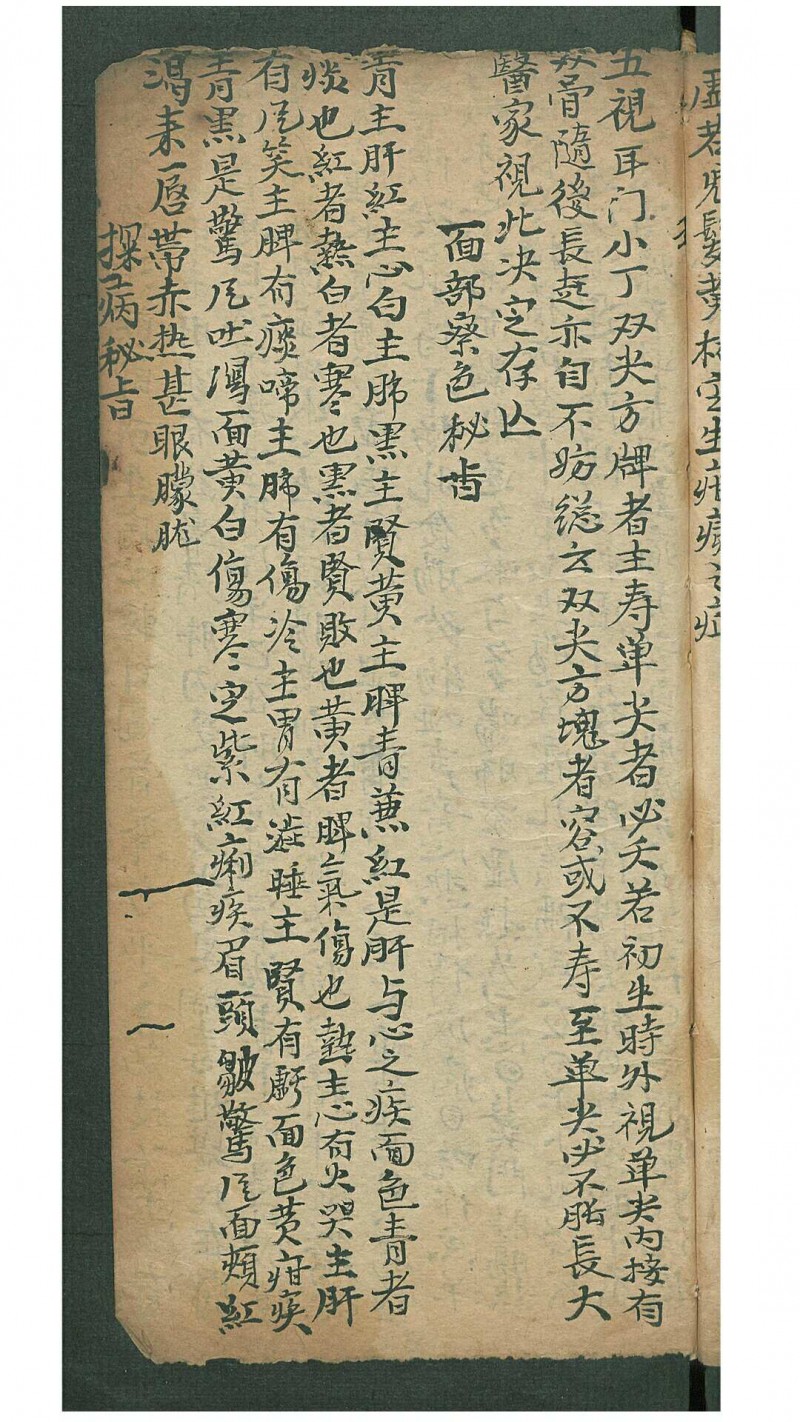 虛若兒髮黄枯定生疳癆之症
五視耳门小丁双尖方牌者主寿单尖者必夭若初生時外視单尖内接有
双骨隨後長起亦自不妨総云双尖方塊者容或不寿至单尖必不能長大
醫家視此决定存亾
面部察色秘旨
青主肝紅主心白主肺黒主賢黄主脾青兼紅是肝与心之疾面色青者
痰也紅者熱白者寒也黒者賢敗也黄者脾氣傷也熱主心有火哭主肝
有风笑主脾有痰啼主肺有傷冷主胃有滋睡主賢有虧面色黄疳疾
青黒是驚风吐瀉面黄白傷寒定紫紅痢疾眉頭皺驚风面頬紅
渴来唇帯赤热甚眼朦胧
探病秘旨